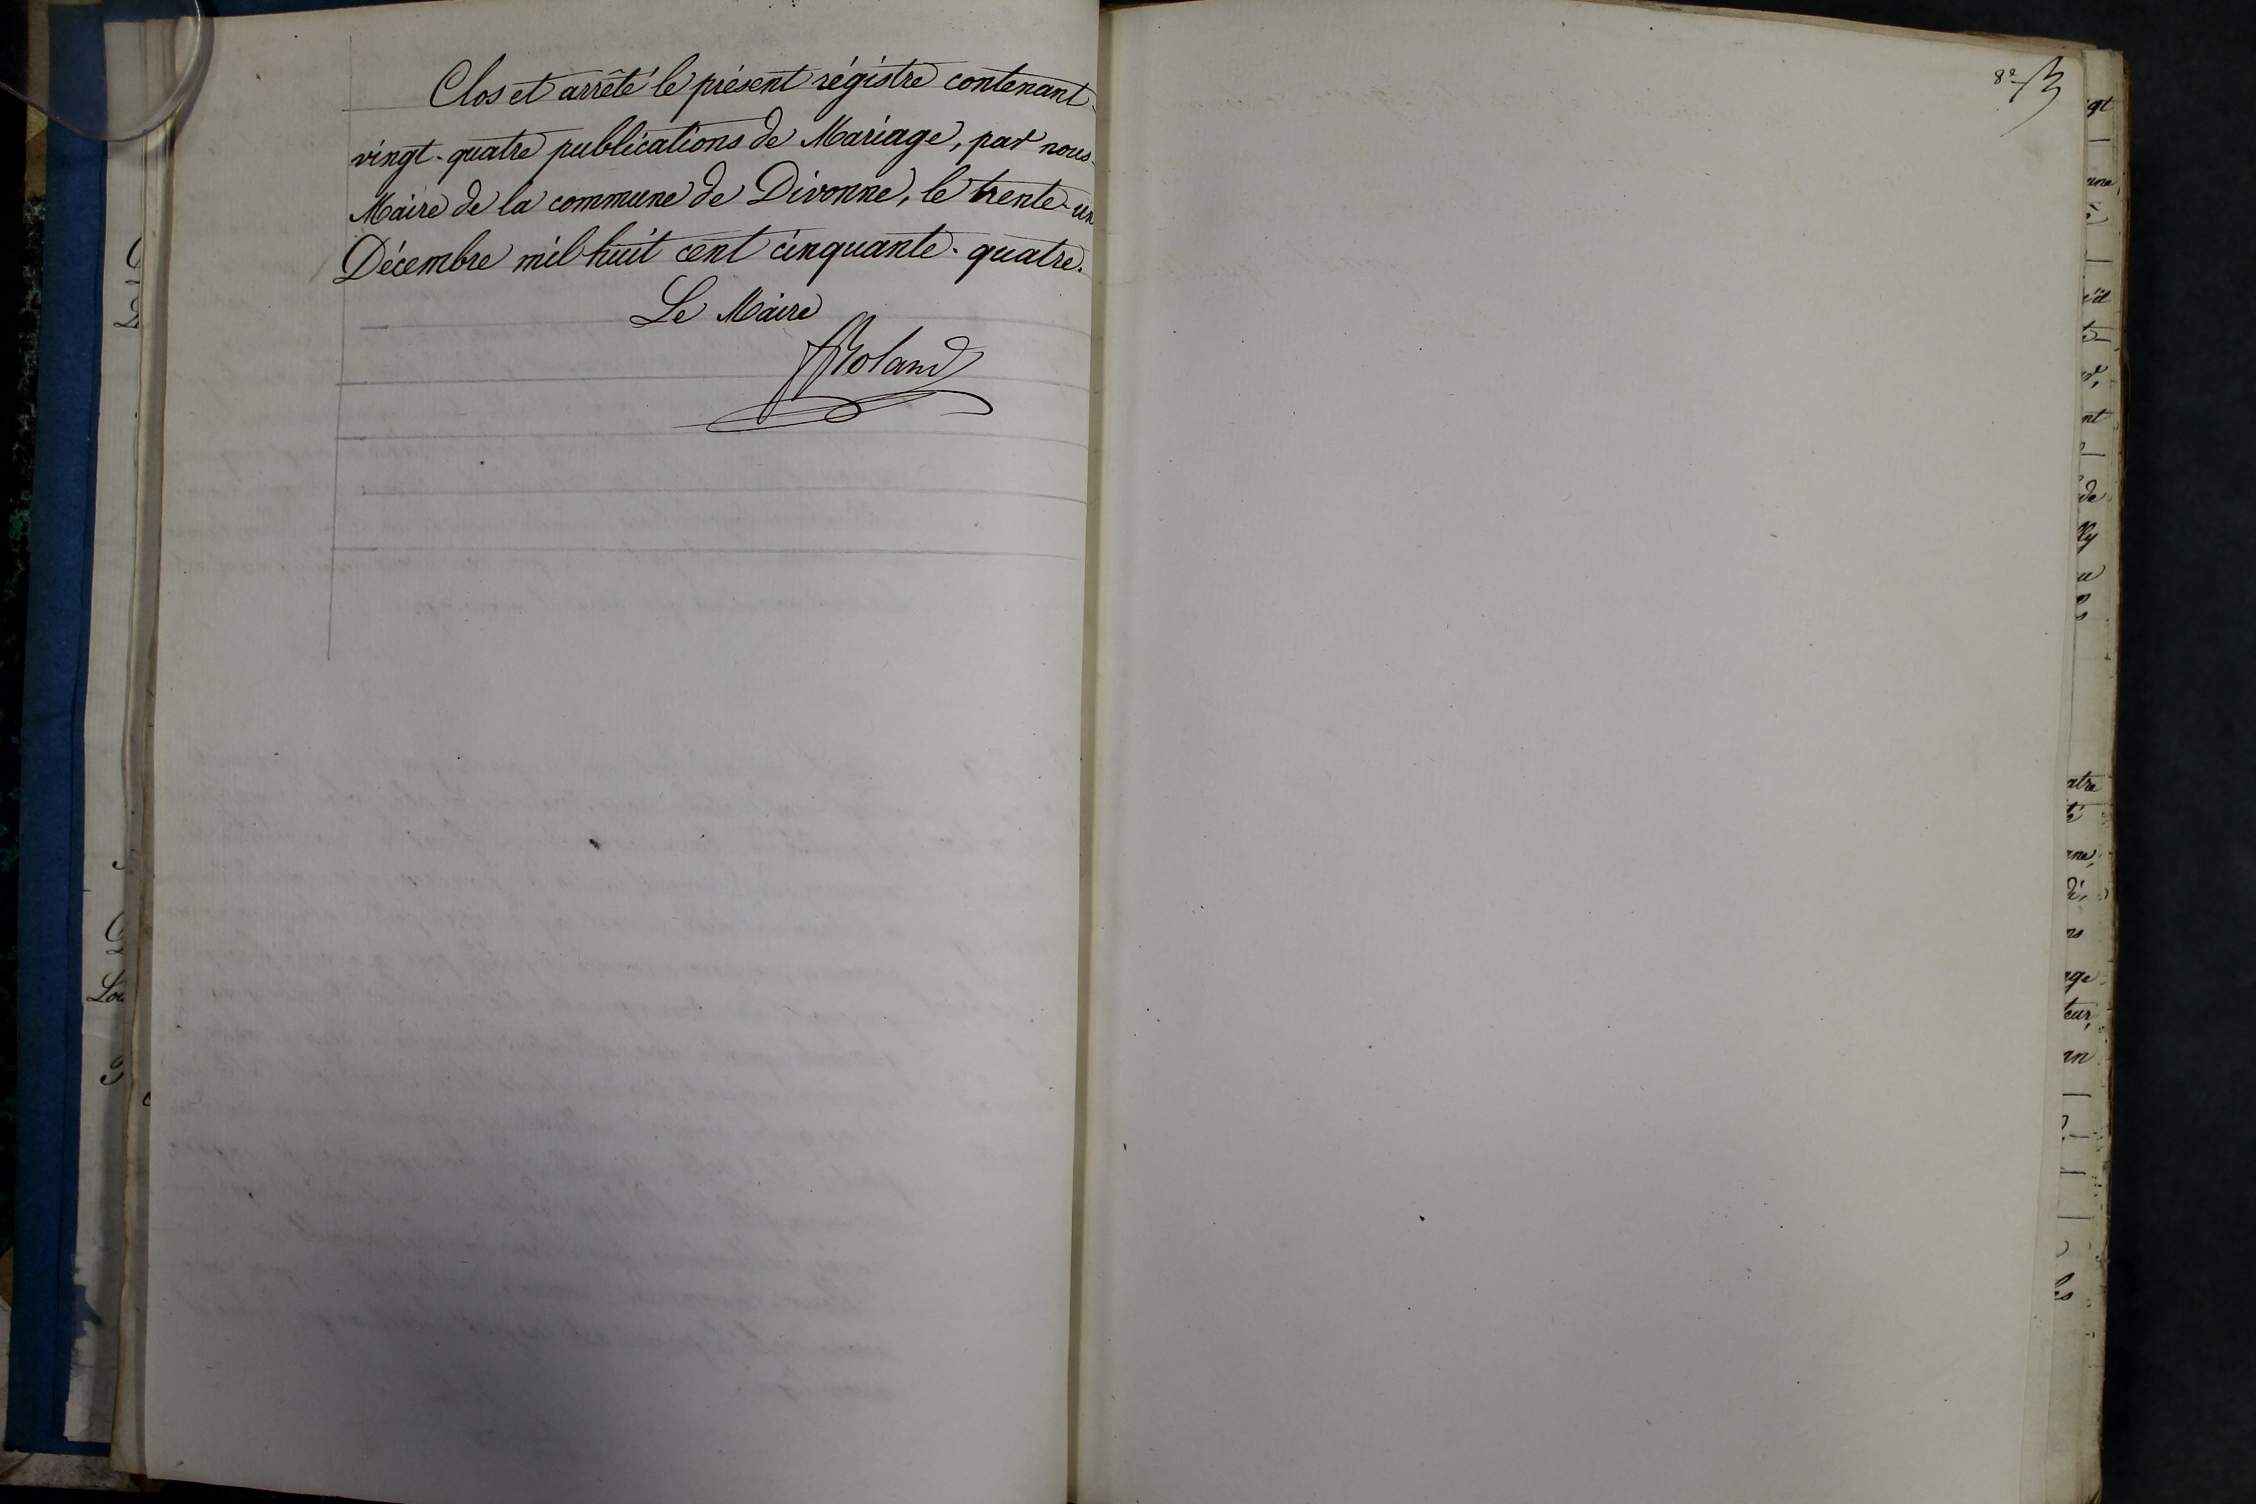 Clos et arrêté le présent régistre contenant
vingt-quatre publications de Mariage, par nous
Maire de la commune de Divonne, le trente-un
Décembre mil huit cent cinquante-quatre.
Le Maire
Roland
8e